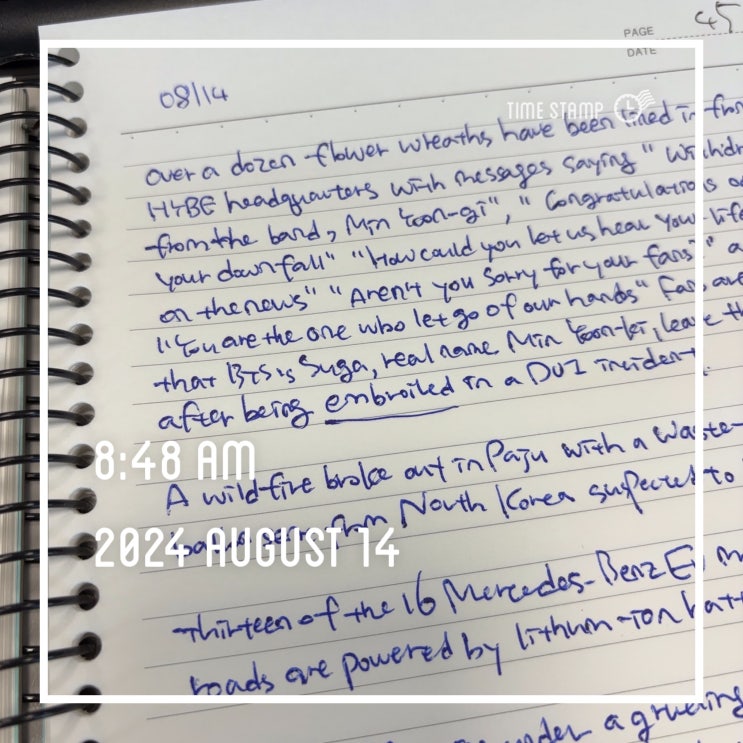 PAGE 45
DATE
08/14
TIME STAMP
over a dozen flower wreaths have been lined in
HYBE headquarters with messages saying "
from the band, Min Yoon-gi", "Congratulations
your downfall" "How could you let us hear your
on the news" "Aren't you sorry for your fans?"
"You are the one who let go of our hands" Fans are
that BTS's Suga, real name Min Yoon-ki, leave
after being embroiled in a DUI incident.
8:48 AM
A wildfire broke out in Paju with a waste-
from North Korea suspected to
2024 AUGUST 14
Thirteen of the 16 Mercedes-Benz EV
roads are powered by lithium-ion
under a grueling